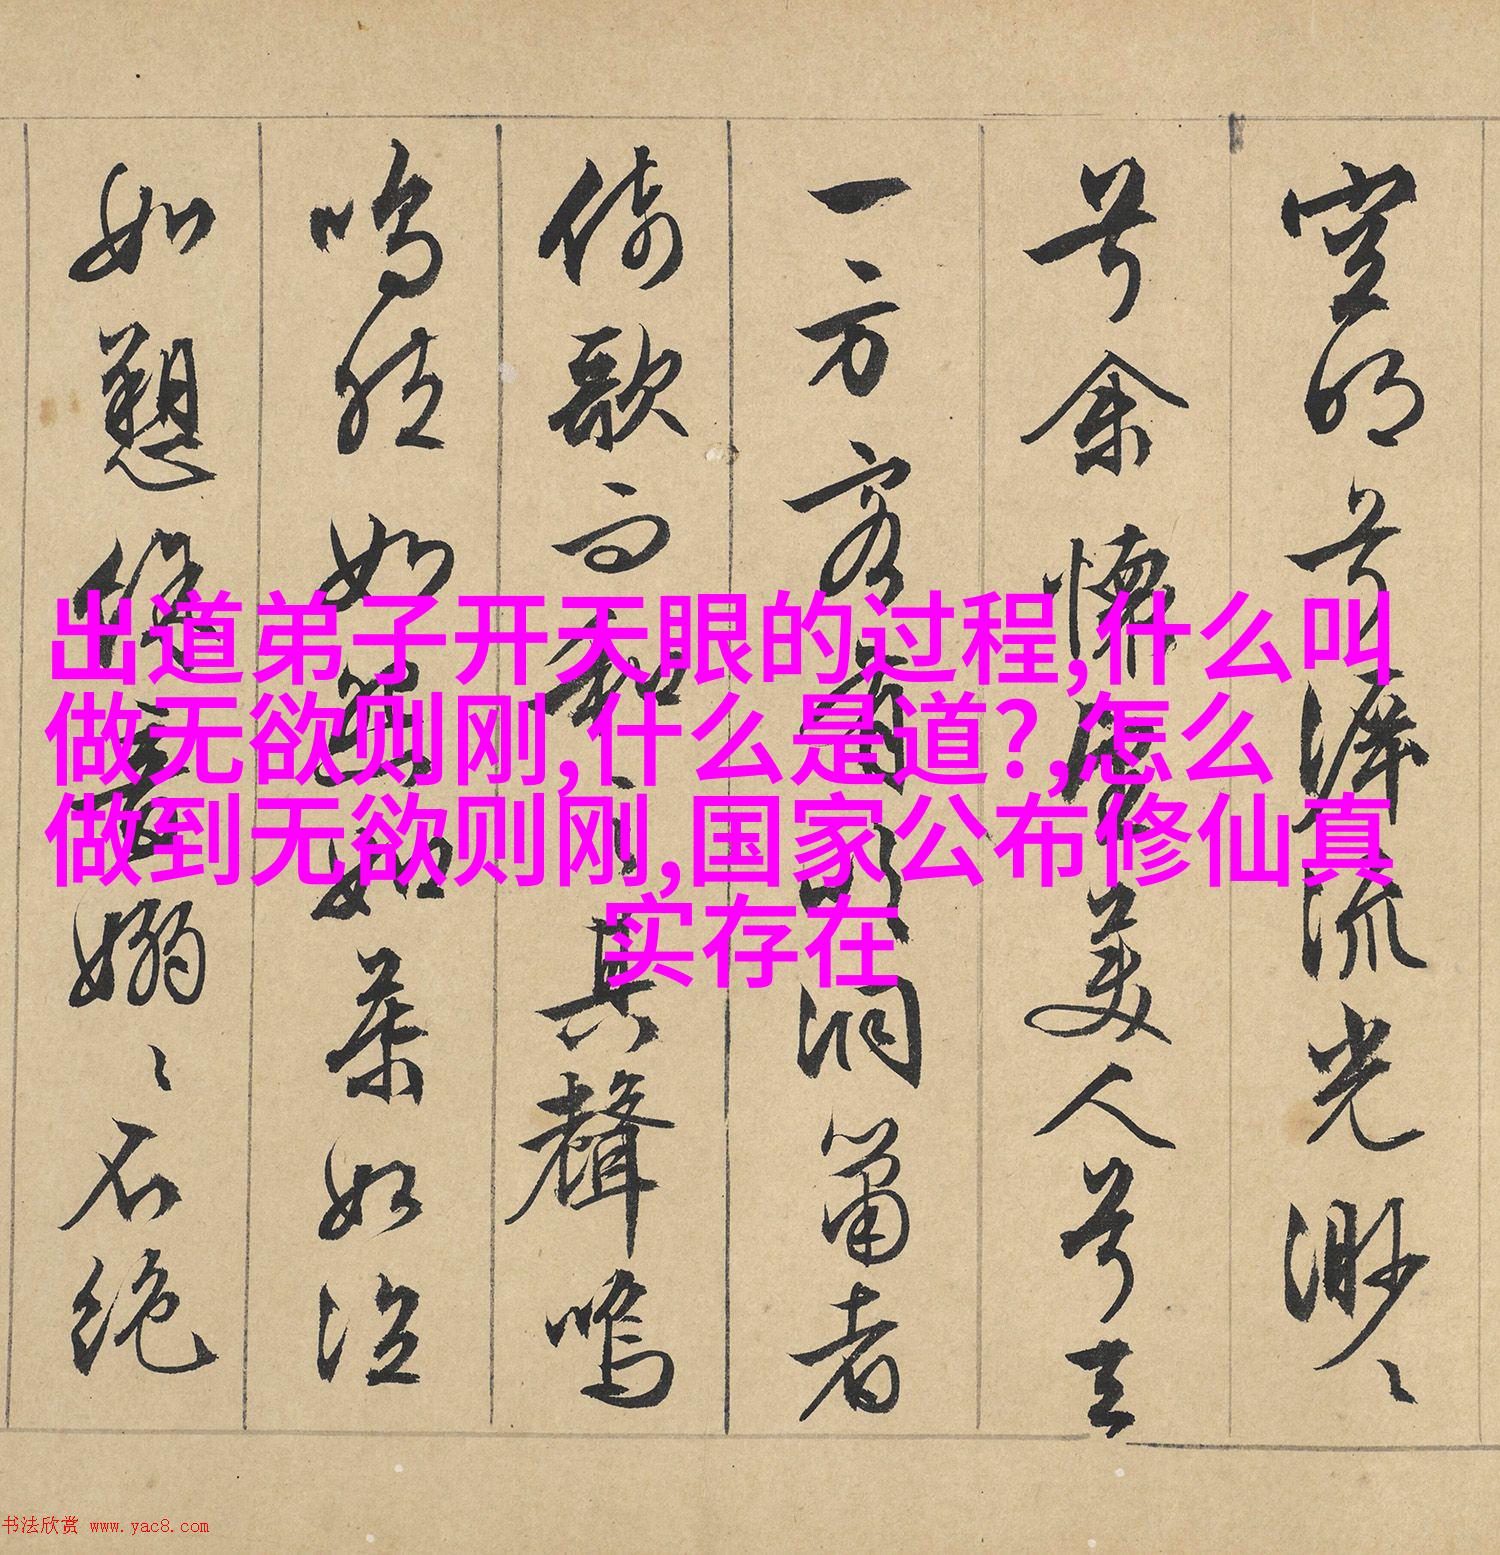 空明兮泝流光渺〻
兮余懷
兮美人兮天
一方客有
洞簫者
倚歌而和
其聲嗚
嗚然如怨如慕如泣
如愬餘音嫋〻不絕
出道弟子开天眼的过程,什么叫
做无欲则刚,什么是道?,怎么
做到无欲则刚,国家公布修仙真
实存在
书法欣赏 www.yac8.com